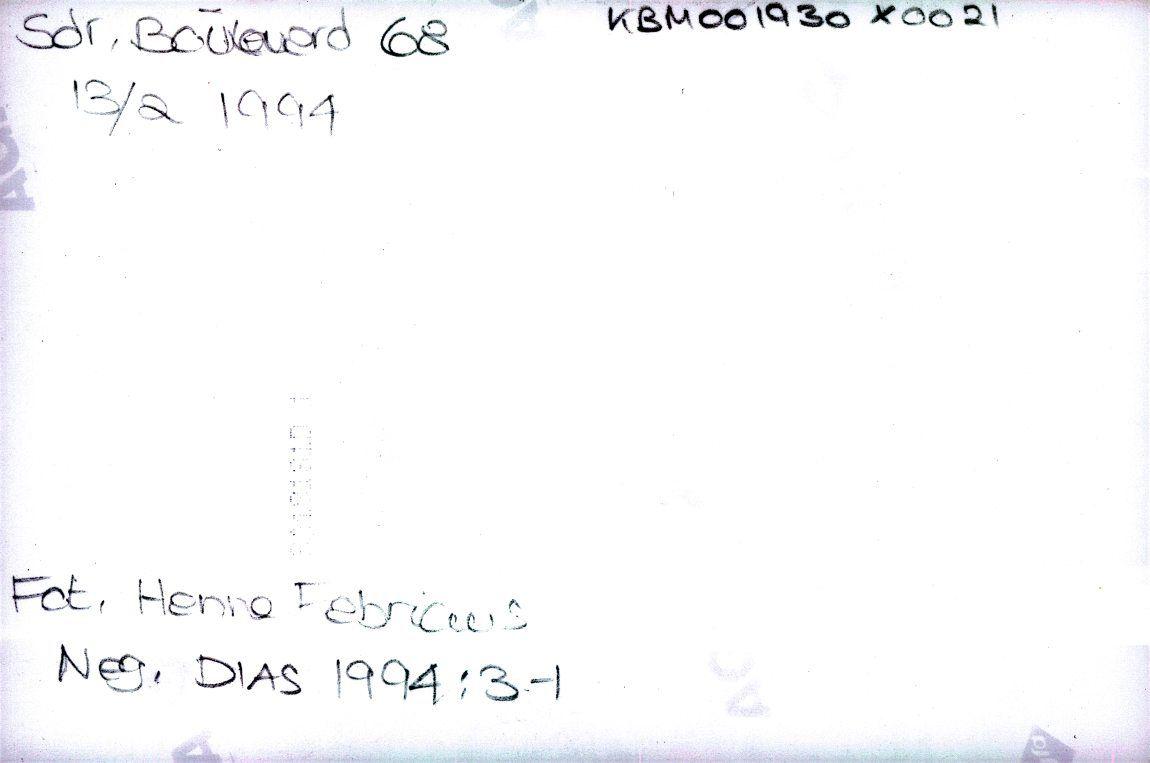 Sdr. Boulevard 68
KBM001930 X0021
13/2 1994
Fot. Hanne Fabricius
Neg. DIAS 1994:3-1